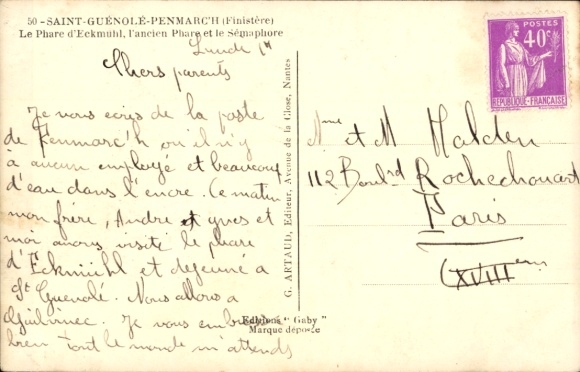 50 - SAINT-GUÉNOLÉ-PENMARC'H (Finistère)
Le Phare d'Eckmühl, l'ancien Phare et le Sémaphore
Lundi
Chers parents
Je vous écris de la poste
de Penmarc'h où il n'y
à aucun employé et beaucoup
d'eau dans l'encre. Ce matin
mon frère, André et yves et
moi avons visité le phare
d'Eckmühl et déjeuné à
St Guénolé. Nous allons a
Guilvinec. Je vous embrasse
bien tout le monde m'attends
G. ARTAUD, Editeur, Avenue de la Close, Nantes
Editions " Gaby "
Marque déposée
POSTES
40c
RÉPUBLIQUE-FRANÇAISE
Mme et M Malden
112 Boulrd Rochechouart
Paris
XVIIIem